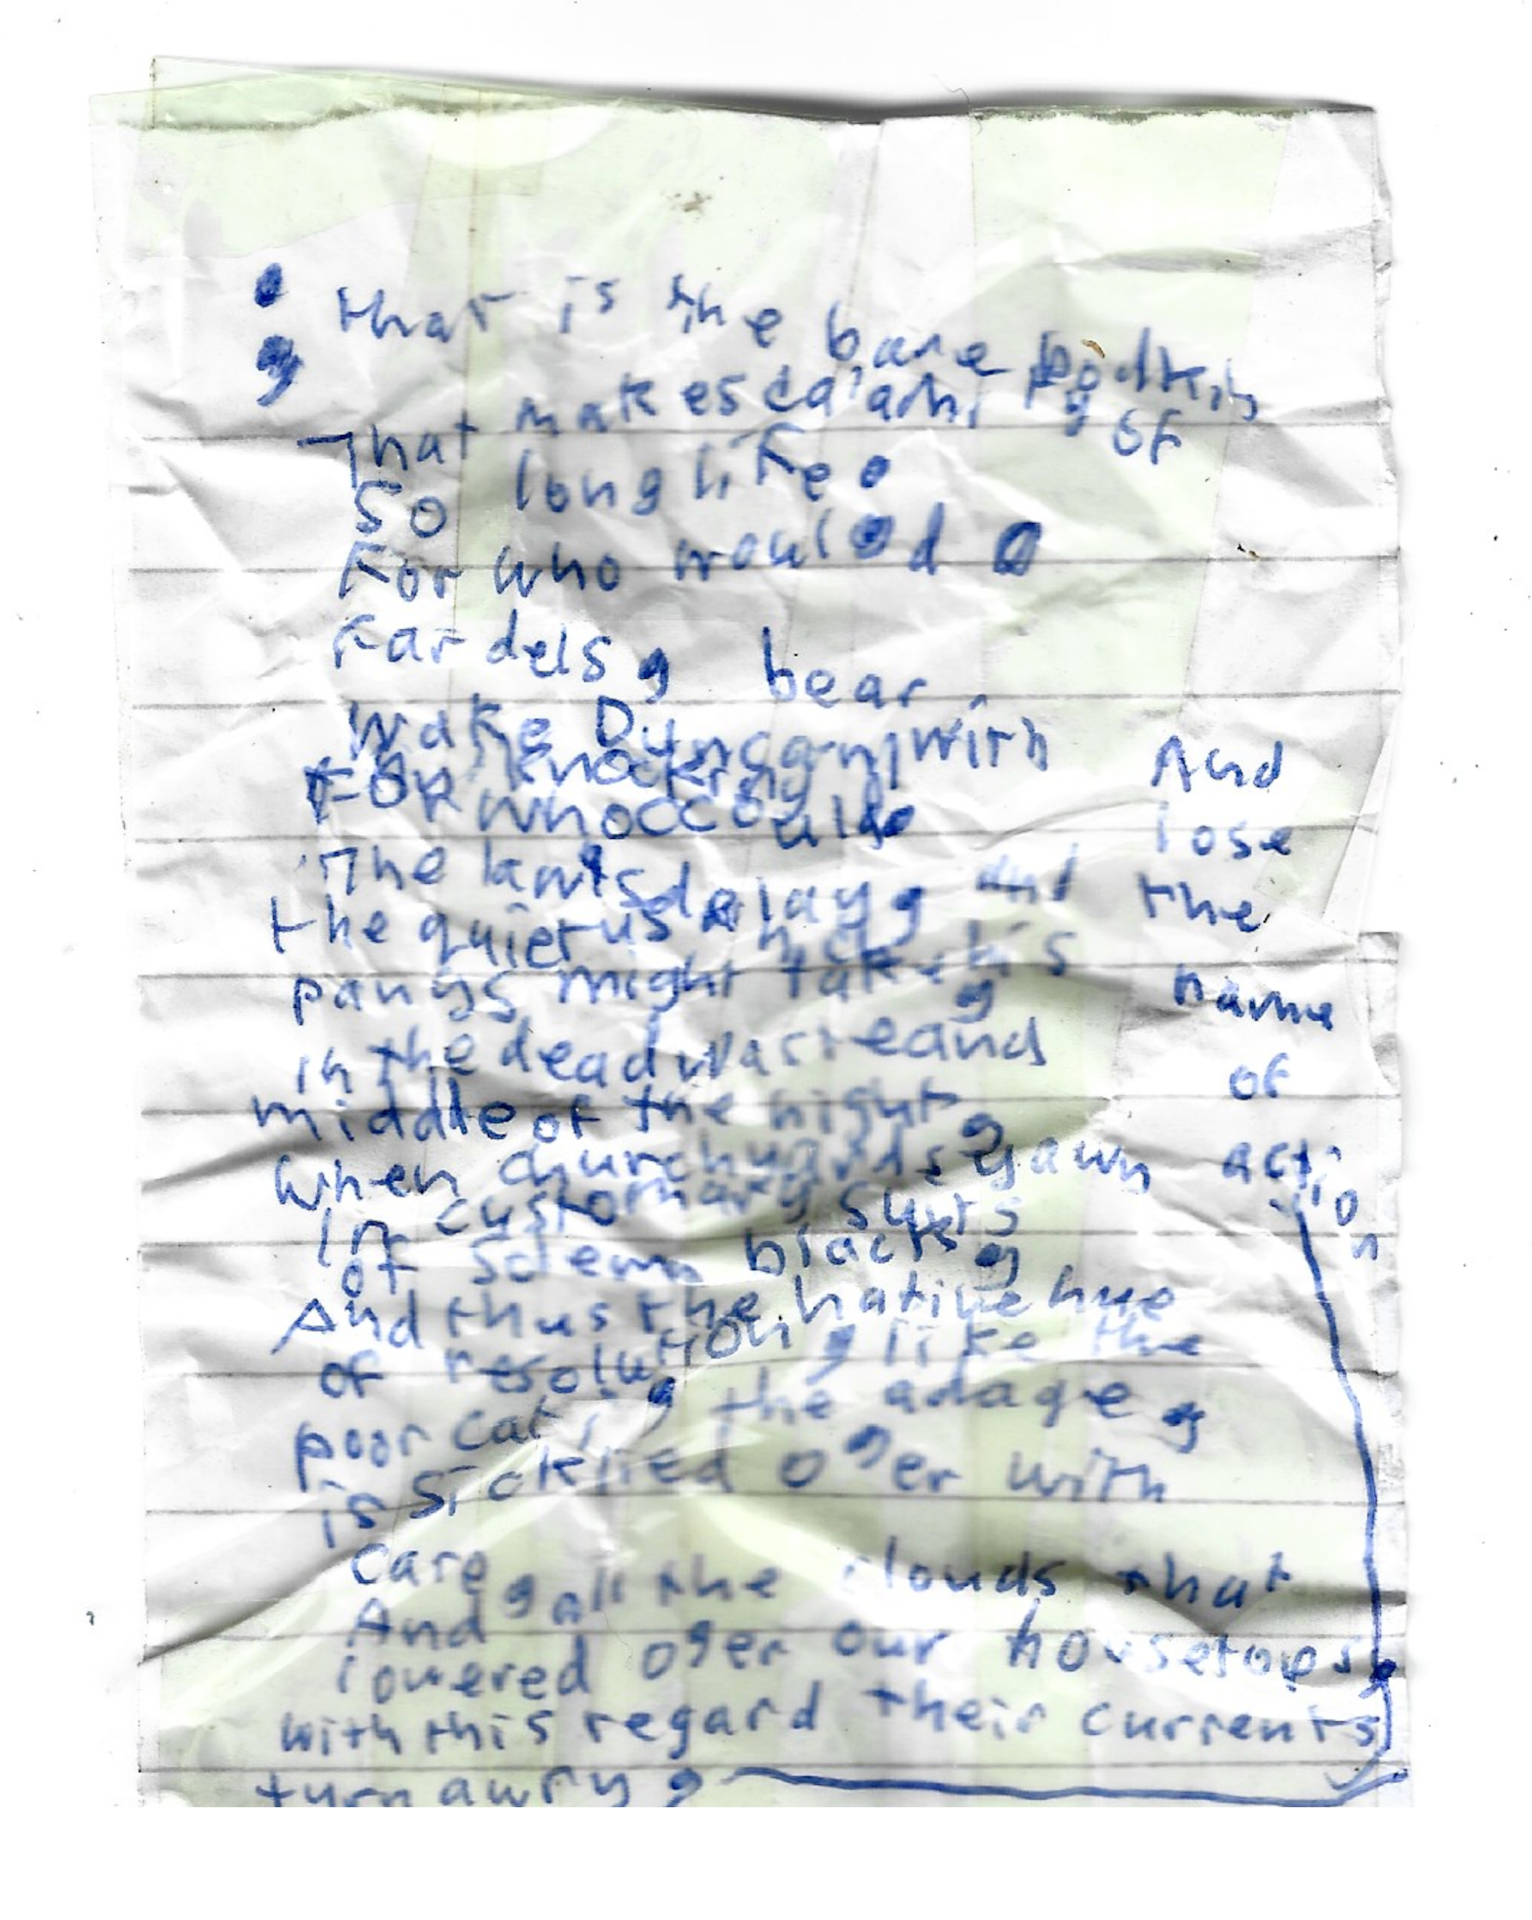 that is the bare bodkin
That makes calamity of
So long life.
For who would
Fardels, bear
Wake Duncan with
knocking
FOR who could
The laws delay, and
the quietus
pangs might take his
in the dead waste and
middle of the night,
when churchyards yawn
In customary suits
of solemn black,
And thus the native hue
of resolution, like the
poor cat i, the adage,
is Sicklied o,er with
Care
And, all the clouds that
lowered o,er our housetops,
with this regard their currents
turn awry,
And
lose
the
name
of
action